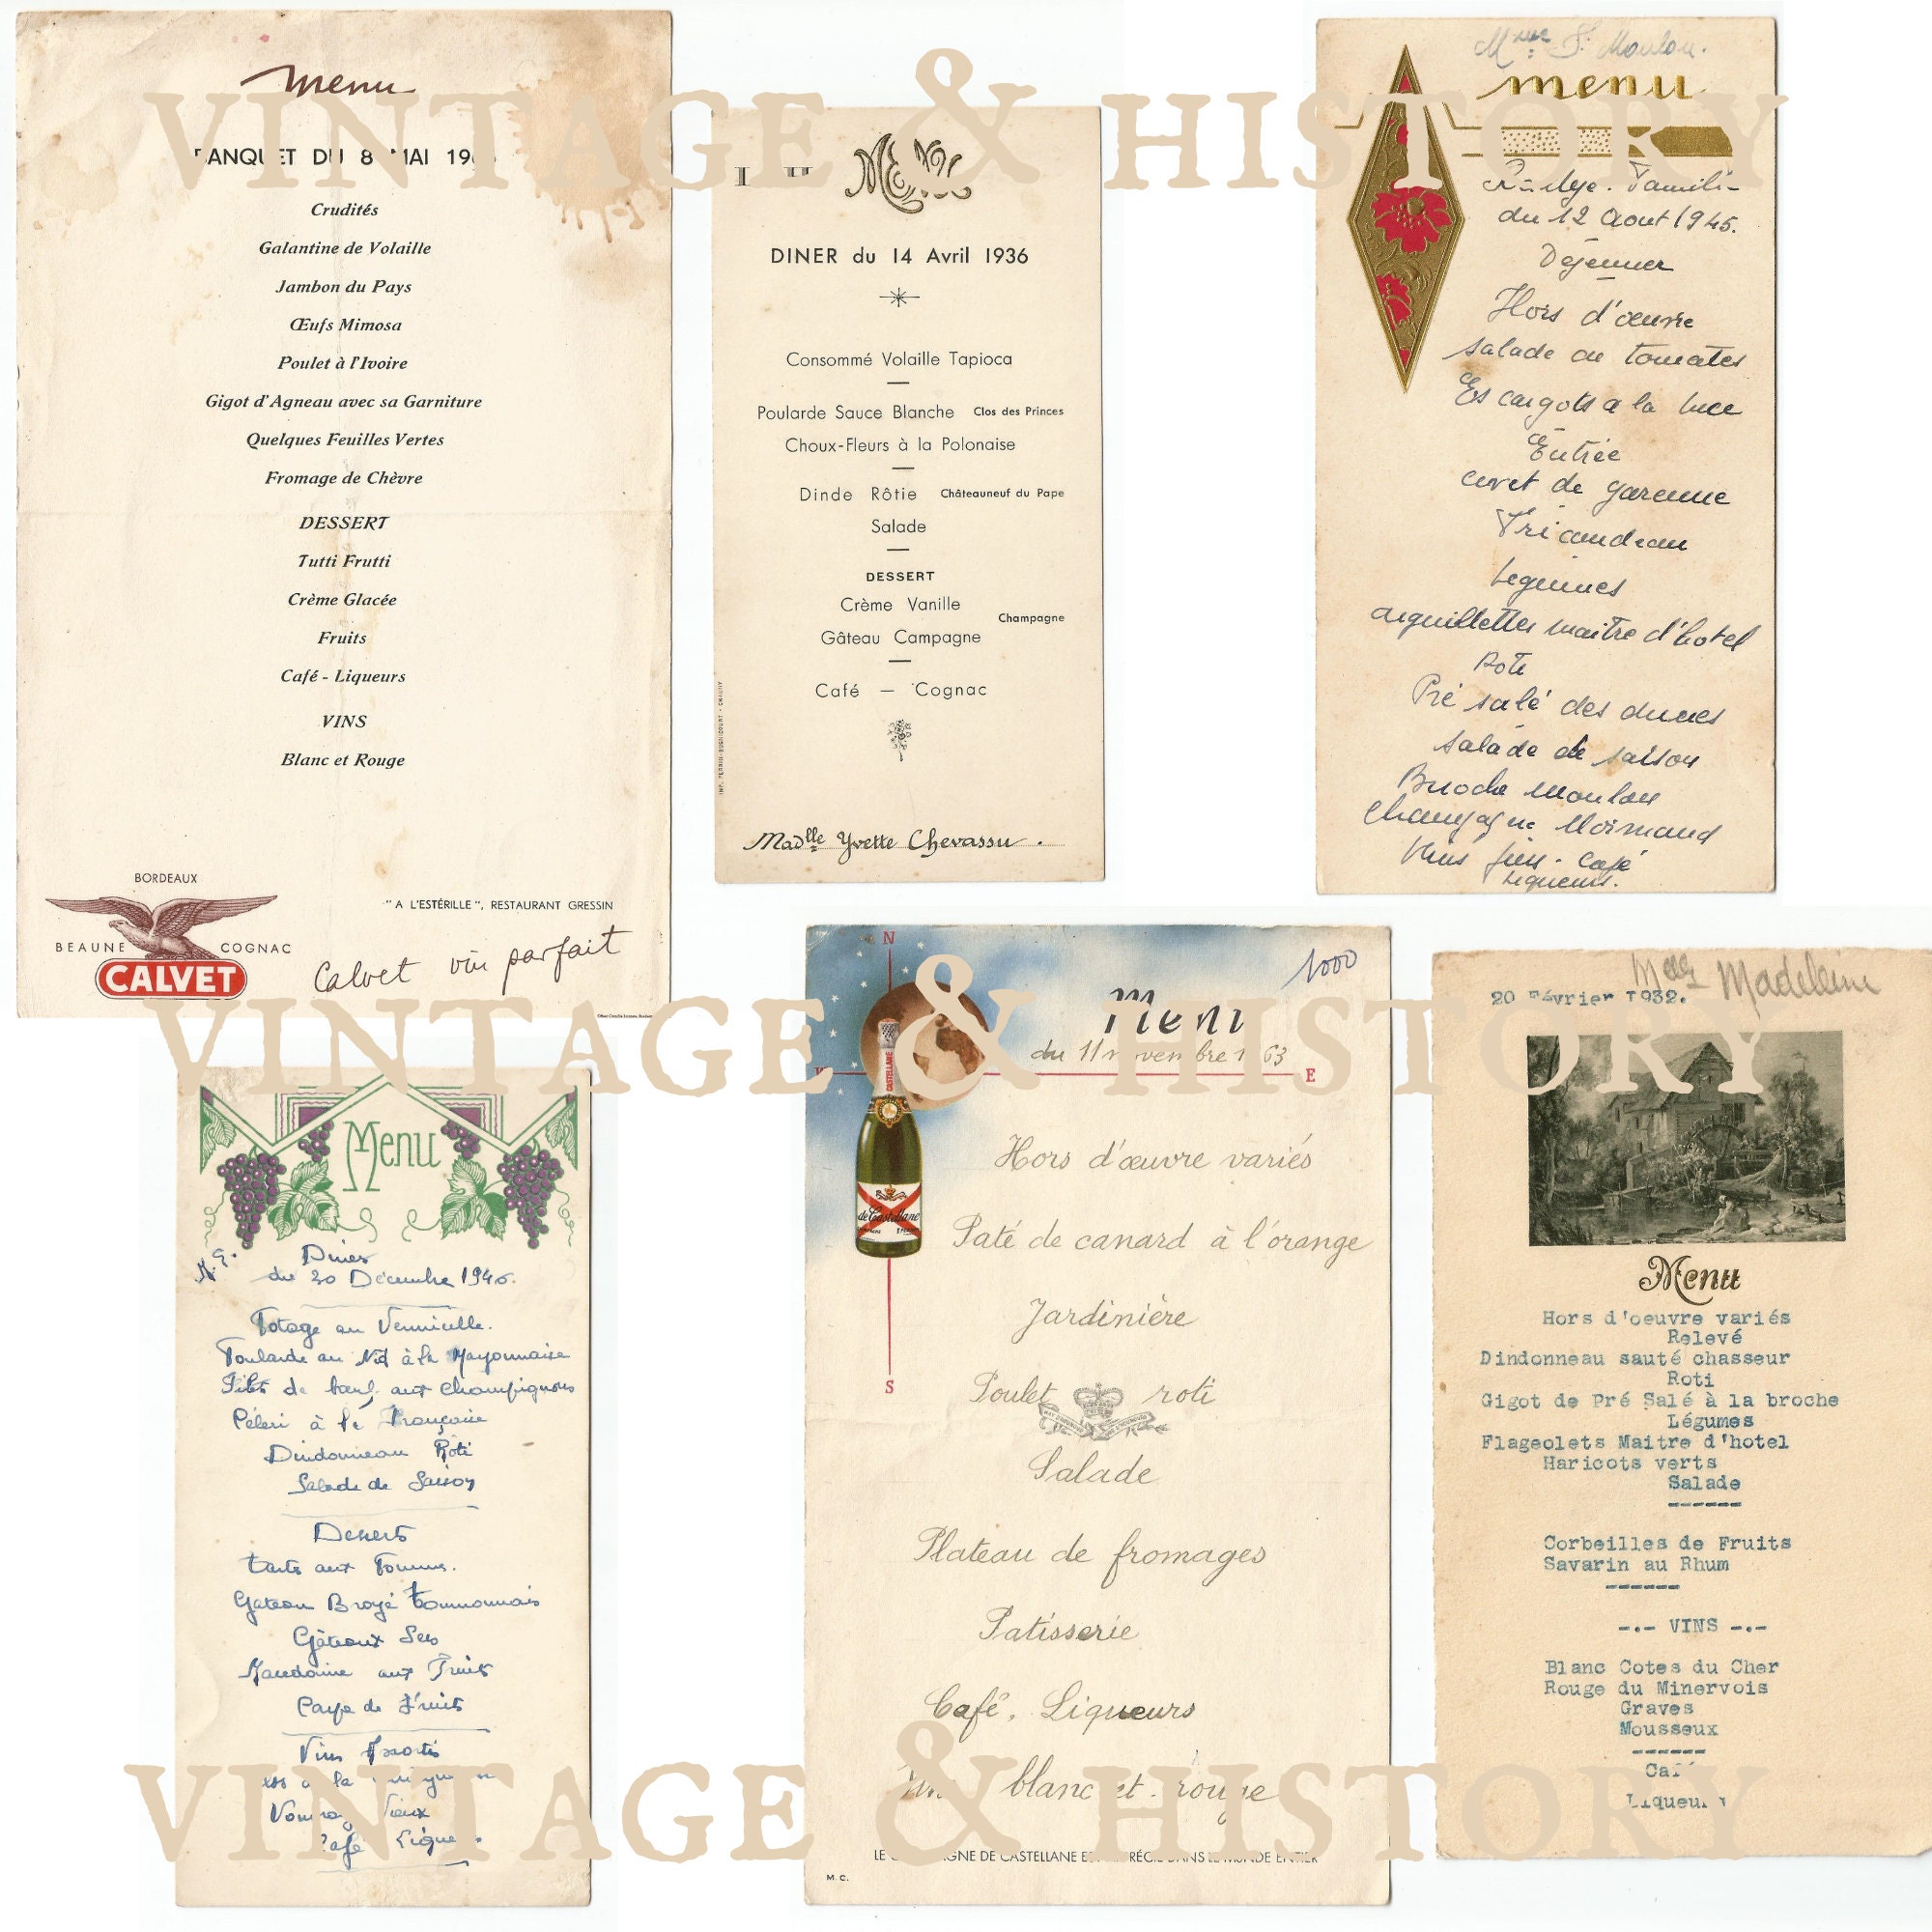 menu
BANQUET DU 8 MAI
Crudités
Galantine de Volaille
Jambon du Pays
Œufs Mimosa
Poulet à l'Ivoire
Gigot d'Agneau avec sa Garniture
Quelques Feuilles Vertes
Fromage de Chèvre
DESSERT
Tutti Frutti
Crème Glacée
Fruits
Café - Liqueurs
VINS
Blanc et Rouge
BORDEAUX
BEAUNE COGNAC
CALVET
"A L'ESTÉRILLE", RESTAURANT GRESSIN
Calvet vin parfait
VINTAGE & HISTORY
MENU
DINER du 14 Avril 1936
Consommé Volaille Tapioca
Poularde Sauce Blanche Clos des Princes
Choux-Fleurs à la Polonaise
Dinde Rôtie Châteauneuf du Pape
Salade
DESSERT
Crème Vanille
Champagne
Gâteau Campagne
Café — Cognac
Madlle Yvette Chevassu.
Mme F. Moulon.
menu
du 12 Aout 1945.
Déjeuner
Hors d'œuvre
salade de tomates
Escargots a la
Entrée
civet de garenne
Fricandeau
Legumes
aiguillettes maitre d'hotel
Roti
Pré salé des dunes
salade de saison
Brioche moulon
Champagne Normand
Vins fins. Café
Liqueurs.
VINTAGE & HISTORY
Menu
Diner
du 30 Décembre 194
Potage au Vermicelle.
Poularde au Nid à la Mayonnaise
Filet de bœuf aux champignons
Céleri à la Française
Dindonneau Rôti
Salade de Saison
Desserts
tarte aux Pommes.
Gateau Broyé
Gâteaux Secs
Macédoine aux Fruits
Coupe de Fruits
Vins Assortis
Vouvray Vieux
Café Liqueurs
N
E
S
1000
Menu
du 11 novembre 1963
CASTELLANE
de Castellane
Hors d'œuvre variés
Paté de canard à l'orange
Jardinière
Poulet roti
Salade
Plateau de fromages
Patisserie
Café, Liqueurs
Vin blanc et rouge
LE CHAMPAGNE DE CASTELLANE EST APPRÉCIÉ DANS LE MONDE ENTIER
M.C.
Madeleine
20 Février 1932.
Menu
Hors d'oeuvre variés
Relevé
Dindonneau sauté chasseur
Roti
Gigot de Pré Salé à la broche
Légumes
Flageolets Maitre d'hotel
Haricots verts
Salade
------
Corbeilles de Fruits
Savarin au Rhum
------
-.- VINS -.-
Blanc Cotes du Cher
Rouge du Minervois
Graves
Mousseux
------
Café
Liqueurs
VINTAGE & HISTORY